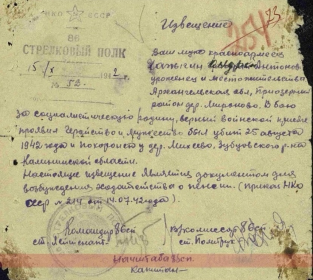 НКО СССР
Извещение
86
СТРЕЛКОВЫЙ ПОЛК
15/ 1942 г.
№ 52.
Ваш муж красноармеец
уроженец и местожительства
Архангельская обл, Приозерный
район дер. Мироново. В бою
за социалистическую родину, верный воинской присяге
проявив геройство и мужество был убит 25 августа
1942 года и похоронен у дер. Михеево, Зубцовского р-на
Калининской области.
Настоящее извещение является документом для
возбуждения ходатайства о пенсии. (Приказ НКО
СССР № 214 от 14.07.42 года).
Командир 86 СП
Военкомиссар 86 СП
ст. Лейтенант
ст. Политрук
Начштаба 86 СП
Капитан